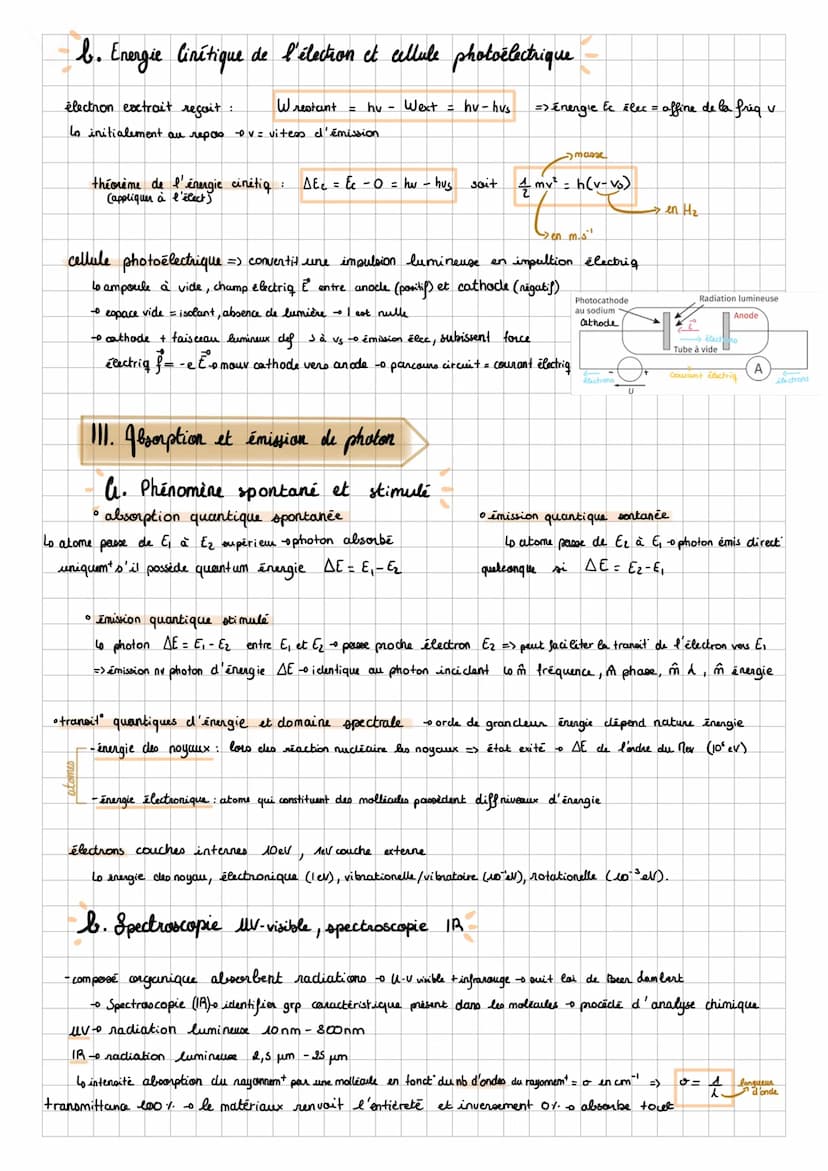 b. Energie Cinétique de l'électron et cellule photoélectrique
électron extrait reçoit : W restant = hν - Wext = hν - hνs => énergie Ec élec = affine de la fréq ν
↳ initialement au repos → v = vitess d'émission
théorème de l'énergie cinétiq : ΔEc = Ec - 0 = hν - hνs soit 1/2 mv² = h(ν - νs)
(appliquer à l'élect)
masse
en Hz
en m.s⁻¹
cellule photoélectrique => convertit une impulsion lumineuse en impultion électriq
↳ ampoule à vide, champ électriq E⃗ entre anode (positif) et cathode (négatif)
→ espace vide = isolant, absence de lumière → I est nulle
→ cathode + faisceau lumineux def > à νs → émission élec, subissent force
électriq f⃗ = -e E⃗ → mouv cathode vers anode → parcours circuit = courant électriq
Photocathode au sodium
Cathode
Radiation lumineuse
Anode
E⃗
électrons
Tube à vide
- +
A
électrons
courant électriq
électrons
U
III. Absorption et émission de photon
a. Phénomène spontané et stimulé
° absorption quantique spontanée
↳ atome passe de E₁ à E₂ supérieur → photon absorbé
uniquemᵗ s'il possède quantum énergie ΔE = E₁ - E₂
° émission quantique sontanée
↳ atome passe de E₂ à E₁ → photon émis direct°
quelconque si ΔE = E₂ - E₁
° émission quantique stimulé
↳ photon ΔE = E₁ - E₂ entre E₁ et E₂ → passe proche électron E₂ => peut faciliter la transit° de l'électron vers E₁
=> émission nv photon d'énergie ΔE → identique au photon incident ↳ m̂ fréquence, m̂ phase, m̂ λ, m̂ énergie
° transit° quantiques d'énergie et domaine spectrale → orde de grandeur énergie dépend nature énergie
atomes
- énergie des noyaux : lors des réaction nucléaire les noyaux => état exité → ΔE de l'ordre du Mev (10⁶ eV)
- énergie électronique : atome qui constituent des mollécules possèdent diff niveaux d'énergie
électrons couches internes 10eV, 1eV couche externe
↳ énergie des noyau, électronique (1eV), vibrationelle/vibratoire (10⁻¹eV), rotationelle (10⁻³ eV).
b. Spectroscopie UV-visible, spectroscopie IR
- composé organique absorbent radiations → U-V visible + infrarouge → suit loi de Beer Lambert
→ Spectroscopie (IR) → identifier grp caractéristique présent dans les molécules → procédé d'analyse chimique
UV → radiation lumineuse 10nm - 800nm
IR → radiation lumineuse 2,5 μm - 25 μm
↳ intensité absorption du rayonnemᵗ par une molécule en fonct° du nb d'ondes du rayonemᵗ = σ en cm⁻¹ => σ = 1/λ longueur d'onde
transmittance 100 % → le matériaux renvoit l'entièreté et inversement 0% → absorbe tout